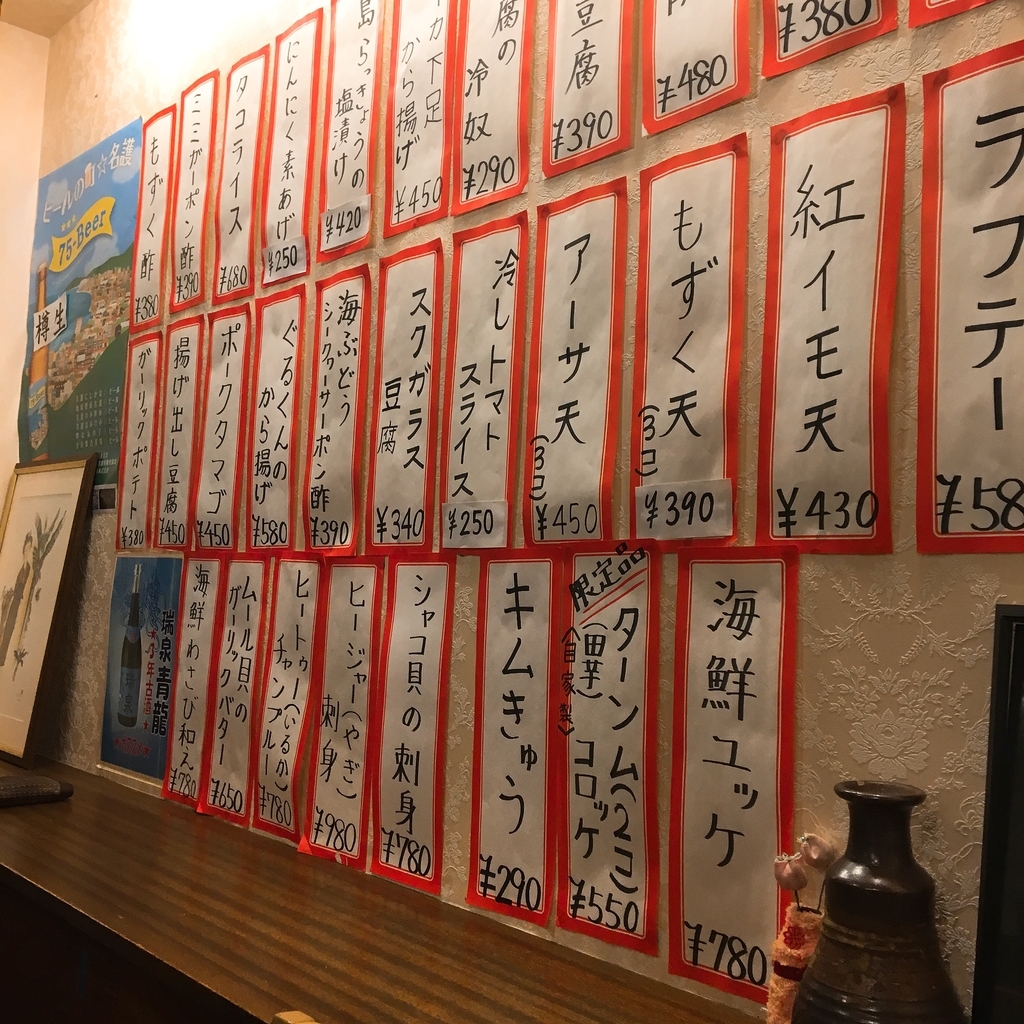 ¥380
¥480
豆腐
¥390
腐の
冷奴
¥290
カ下足
から揚げ
¥450
島らっきょうの
塩漬け
¥420
にんにく素あげ
¥250
タコライス
¥680
ミミガーポン酢
¥390
もずく酢
¥380
ラフテー
¥58
紅イモ天
¥430
もずく天
(3コ)
¥390
アーサ天
(3コ)
¥450
冷しトマト
スライス
¥250
スクガラス
豆腐
¥340
海ぶどう
シークヮーサーポン酢
¥390
ぐるくんの
から揚げ
¥580
ポークタマゴ
¥450
揚げ出し豆腐
¥450
ガーリックポテト
¥380
海鮮ユッケ
¥780
限定品
ターンム(2コ)
(田芋)コロッケ
<自家製>
¥550
キムきゅう
¥290
シャコ貝の刺身
¥780
ヒージャー(やぎ)
刺身
¥980
ヒートゥー(いるか)
チャンプルー
¥780
ムール貝の
ガーリックバター
¥650
海鮮わさび和え
¥780
ビールの街☆名護
75-Beer
樽生
瑞泉青龍
3年古酒